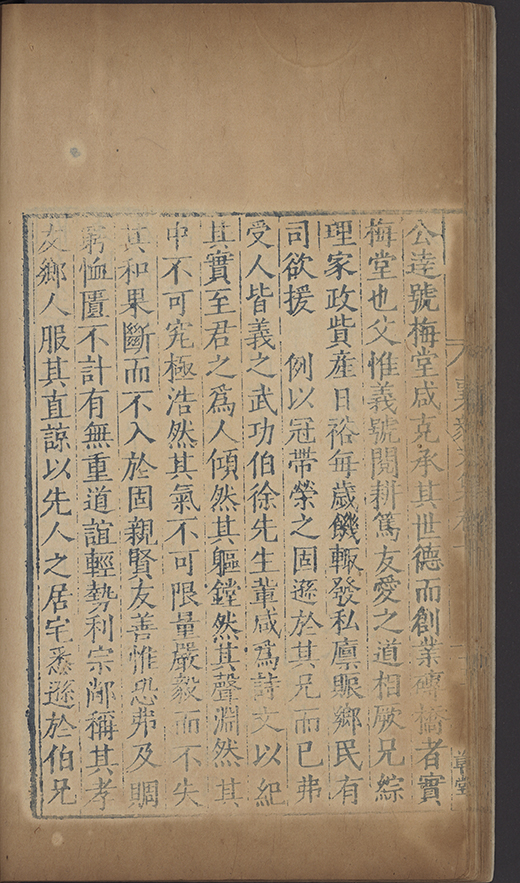 公逵號梅堂咸克承其世德而創業磚橋者實
梅堂也父惟義號閱耕篤友愛之道相厥兄綜
理家政貲產日裕每歲饑輙發私廩賑鄉民有
司欲援 例以冠帶榮之固遜於其兄而已弗
受人皆義之武功伯徐先生軰咸爲詩文以紀
其實至君之爲人傾然其軀鏜然其聲淵然其
中不可究極浩然其氣不可限量嚴毅而不失
其和果斷而不入於固親賢友善惟恐弗及賙
窮恤匱不計有無重道誼輕勢利宗鄰稱其孝
友鄉人服其直諒以先人之居宅悉遜於伯兄
草堂